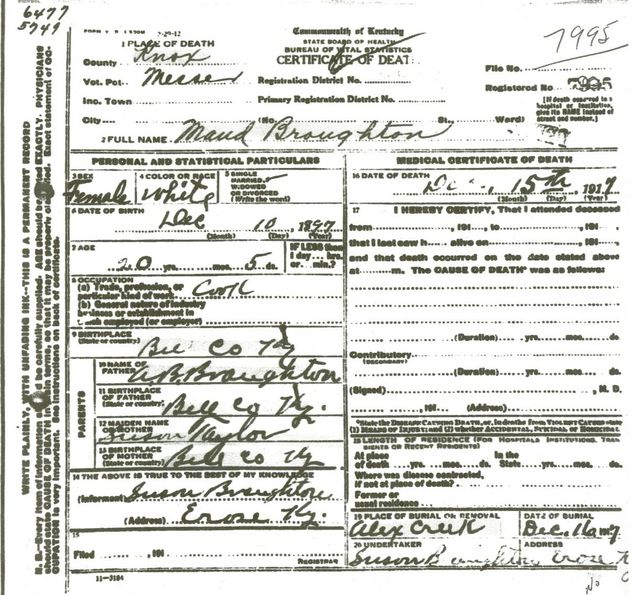 6477
5749
7-29-12
Commonwealth of Kentucky
STATE BOARD OF HEALTH
BUREAU OF VITAL STATISTICS
CERTIFICATE OF DEAT
1 PLACE OF DEATH
County Knox
Vot. Pct. Messer
Inc. Town
City
Registration District No.
Primary Registration District No.
(No. St., Ward)
7995
File No.
Registered No 7995
[If death occurred in a hospital or institution, give its NAME instead of street and number.]
2 FULL NAME Maud Broughton
PERSONAL AND STATISTICAL PARTICULARS
3 SEX
Female
4 COLOR OR RACE
White
5 SINGLE
MARRIED
WIDOWED
OR DIVORCED
(Write the word)
6 DATE OF BIRTH
Dec 10, 1897
(Month) (Day) (Year)
7 AGE
20 yrs. mos. 5 ds.
IF LESS than
1 day... hrs.
or... min.?
8 OCCUPATION
(a) Trade, profession, or
particular kind of work Cook
(b) General nature of industry
business or establishment in
which employed (or employer)
9 BIRTHPLACE
(State or country) Bell Co Ky
PARENTS
10 NAME OF
FATHER A.B. Broughton
11 BIRTHPLACE
OF FATHER
(State or country) Bell Co Ky.
12 MAIDEN NAME
OF MOTHER Susan Taylor
13 BIRTHPLACE
OF MOTHER
(State or country) Bell Co Ky
14 THE ABOVE IS TRUE TO THE BEST OF MY KNOWLEDGE
(Informant) Susan Broughton
(Address) Erose Ky.
15
Filed , 191
REGISTRAR
11-3184
MEDICAL CERTIFICATE OF DEATH
16 DATE OF DEATH
Dec. 15th, 1917
(Month) (Day) (Year)
17 I HEREBY CERTIFY, That I attended deceased
from , 191 , to , 191 ,
that I last saw h alive on , 191 ,
and that death occurred on the date stated above
at m. The CAUSE OF DEATH* was as follows:
(Duration) yrs. mos. ds.
Contributory
(SECONDARY)
(Duration) yrs. mos. ds.
(Signed) , M. D.
, 191 (Address)
*State the DISEASE CAUSING DEATH, or, in deaths from VIOLENT CAUSES state
(1) MEANS OF INJURY; and (2) whether ACCIDENTAL, SUICIDAL or HOMICIDAL.
18 LENGTH OF RESIDENCE (FOR HOSPITALS, INSTITUTIONS, TRAN-
SIENTS OR RECENT RESIDENTS)
At place In the
of death yrs. mos. ds. State yrs. mos. ds.
Where was disease contracted,
if not at place of death?
Former or
usual residence
19 PLACE OF BURIAL OR REMOVAL
Alex Creek
DATE OF BURIAL
Dec. 16
20 UNDERTAKER
Susan Broughton
ADDRESS
Erose K
No
WRITE PLAINLY, WITH UNFADING INK—THIS IS A PERMANENT RECORD
N. B.—Every item of information should be carefully supplied. AGE should be stated EXACTLY. PHYSICIANS
should state CAUSE OF DEATH in plain terms, so that it may be properly classified. Exact statement of OC-
CUPATION is very important. See instructions on back of certificate.